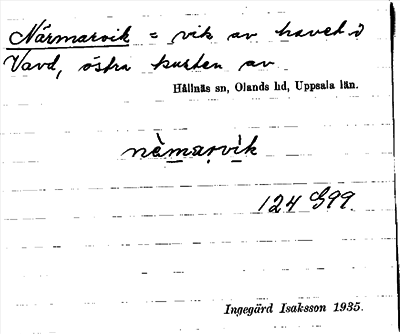 Närmarvik = vik av havet i
Vavd, östra kusten av
Hållnäs sn, Olands hd, Uppsala län.
nèmarvìk
124 G99.
Ingegärd Isaksson 1935.